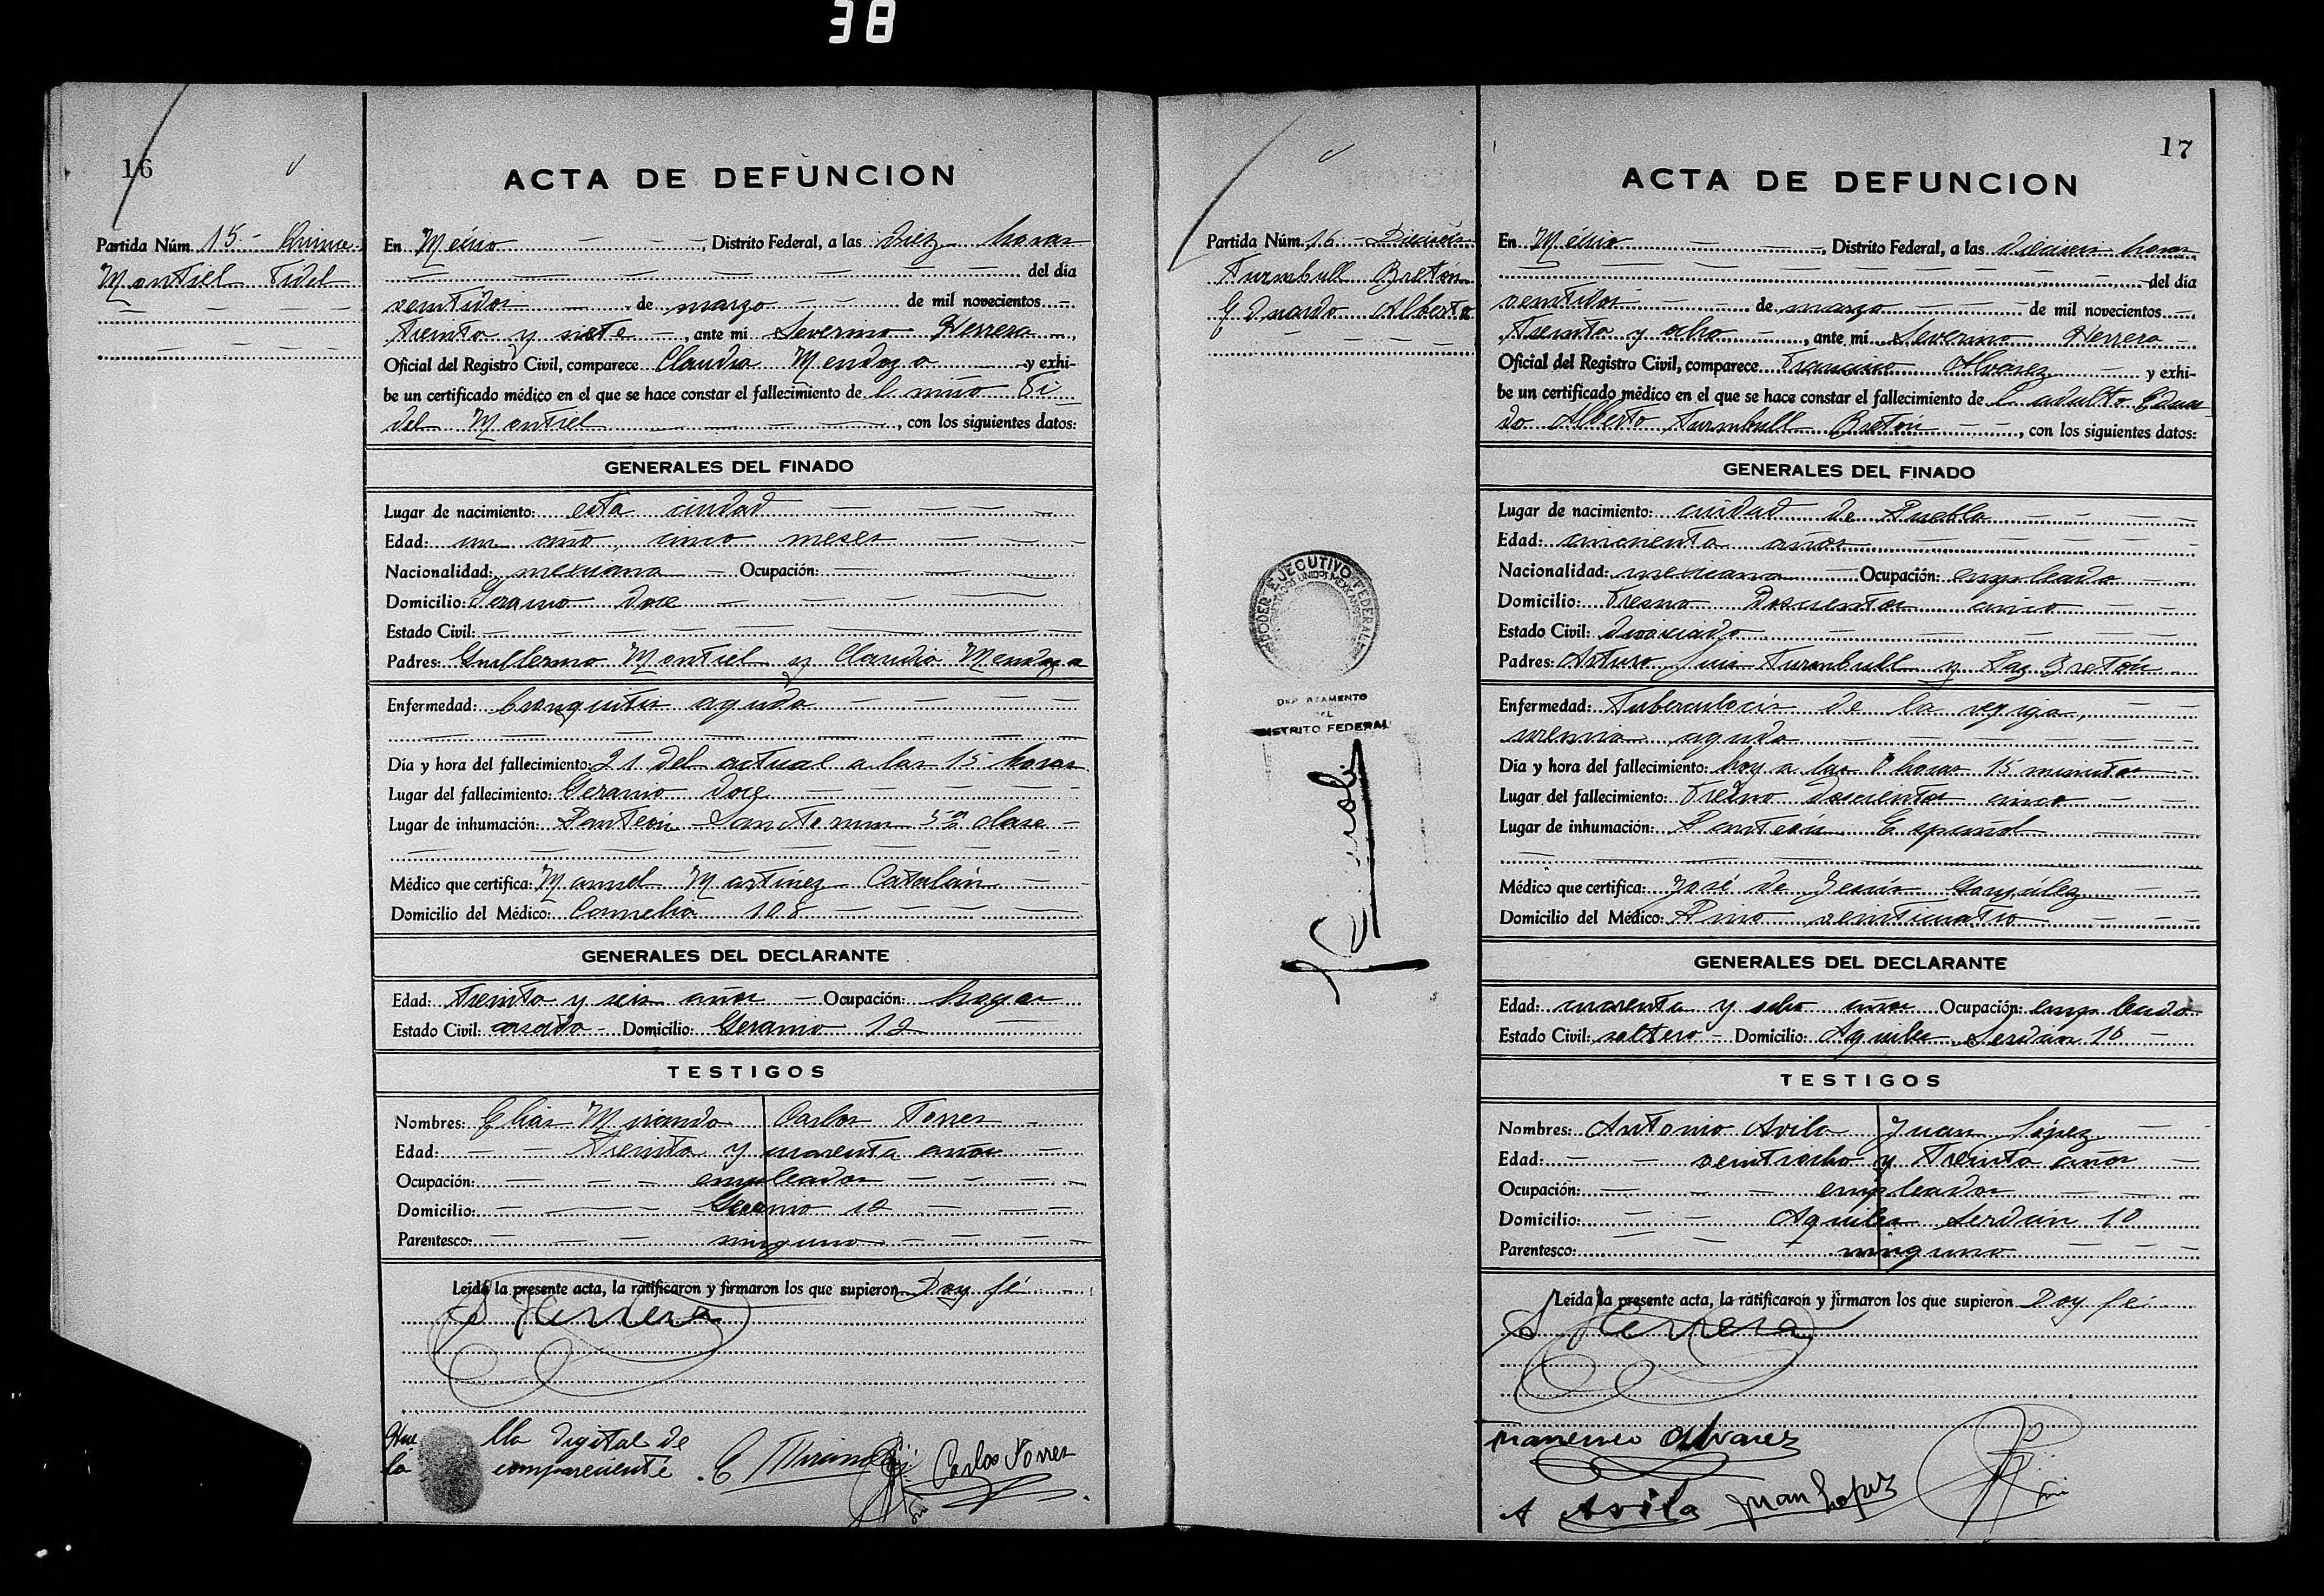 38
16
Partida Núm. 15 - Quince
Montiel Fidel
ACTA DE DEFUNCION
En México, Distrito Federal, a las diez horas
del día
veintidós de marzo de mil novecientos
treinta y siete, ante mí Severino Herrera,
Oficial del Registro Civil, comparece Claudia Mendoza y exhi-
be un certificado médico en el que se hace constar el fallecimiento de l niño Fi
del Montiel, con los siguientes datos:
GENERALES DEL FINADO
Lugar de nacimiento: esta ciudad
Edad: un año, cinco meses
Nacionalidad: mexicana Ocupación:
Domicilio: Geranio doce
Estado Civil:
Padres: Guillermo Montiel y Claudia Mendoza
Enfermedad: bronquitis aguda
Día y hora del fallecimiento: 21 del actual a las 15 horas
Lugar del fallecimiento: Geranio doce
Lugar de inhumación: Panteón Sanctorum 5a clase
Médico que certifica: Manuel Martínez Catalán
Domicilio del Médico: Cornelia 108
GENERALES DEL DECLARANTE
Edad: treinta y seis años Ocupación: hogar
Estado Civil: casada Domicilio: Geranio 12
TESTIGOS
Nombres: Elías Miranda Carlos Torres
Edad: treinta y cuarenta años
Ocupación: empleados
Domicilio: Geranio 10
Parentesco: ninguno
Leída la presente acta, la ratificaron y firmaron los que supieron Doy fé
S Herrera
Hue lla digital de
la compareciente E Miranda Carlos Torres
Partida Núm. 16 - Dieciséis
Turnbull Bretón
Eduardo Alberto
PODER EJECUTIVO FEDERAL
ESTADOS UNIDOS MEXICANOS
DEPARTAMENTO
DEL
DISTRITO FEDERAL
17
ACTA DE DEFUNCION
En México, Distrito Federal, a las dieciseis horas
del día
veintidós de marzo de mil novecientos
treinta y ocho, ante mí Severino Herrera
Oficial del Registro Civil, comparece Francisco Alvarez y exhi-
be un certificado médico en el que se hace constar el fallecimiento de l adulto Eduar
do Alberto Turnbull Bretón, con los siguientes datos:
GENERALES DEL FINADO
Lugar de nacimiento: ciudad de Puebla
Edad: cincuenta años
Nacionalidad: mexicana Ocupación: empleado
Domicilio: Fresno doscientos cinco
Estado Civil: divorciado
Padres: Arturo Luis Turnbull y Paz Bretón
Enfermedad: Tuberculocis de la vegiga,
uremia aguda
Día y hora del fallecimiento: hoy a las 8 horas 15 minutos
Lugar del fallecimiento: Fresno doscientos cinco
Lugar de inhumación: Panteón Español
Médico que certifica: José de Jesús González
Domicilio del Médico: Pino veinticuatro
GENERALES DEL DECLARANTE
Edad: cuarenta y ocho años Ocupación: empleado
Estado Civil: soltero Domicilio: Aquiles Serdán 10
TESTIGOS
Nombres: Antonio Avila Juan López
Edad: veintiocho y treinta años
Ocupación: empleados
Domicilio: Aquiles Serdán 10
Parentesco: ninguno
Leída la presente acta, la ratificaron y firmaron los que supieron Doy fé
S Herrera
Francisco Alvarez
A Avila Juan Lopez